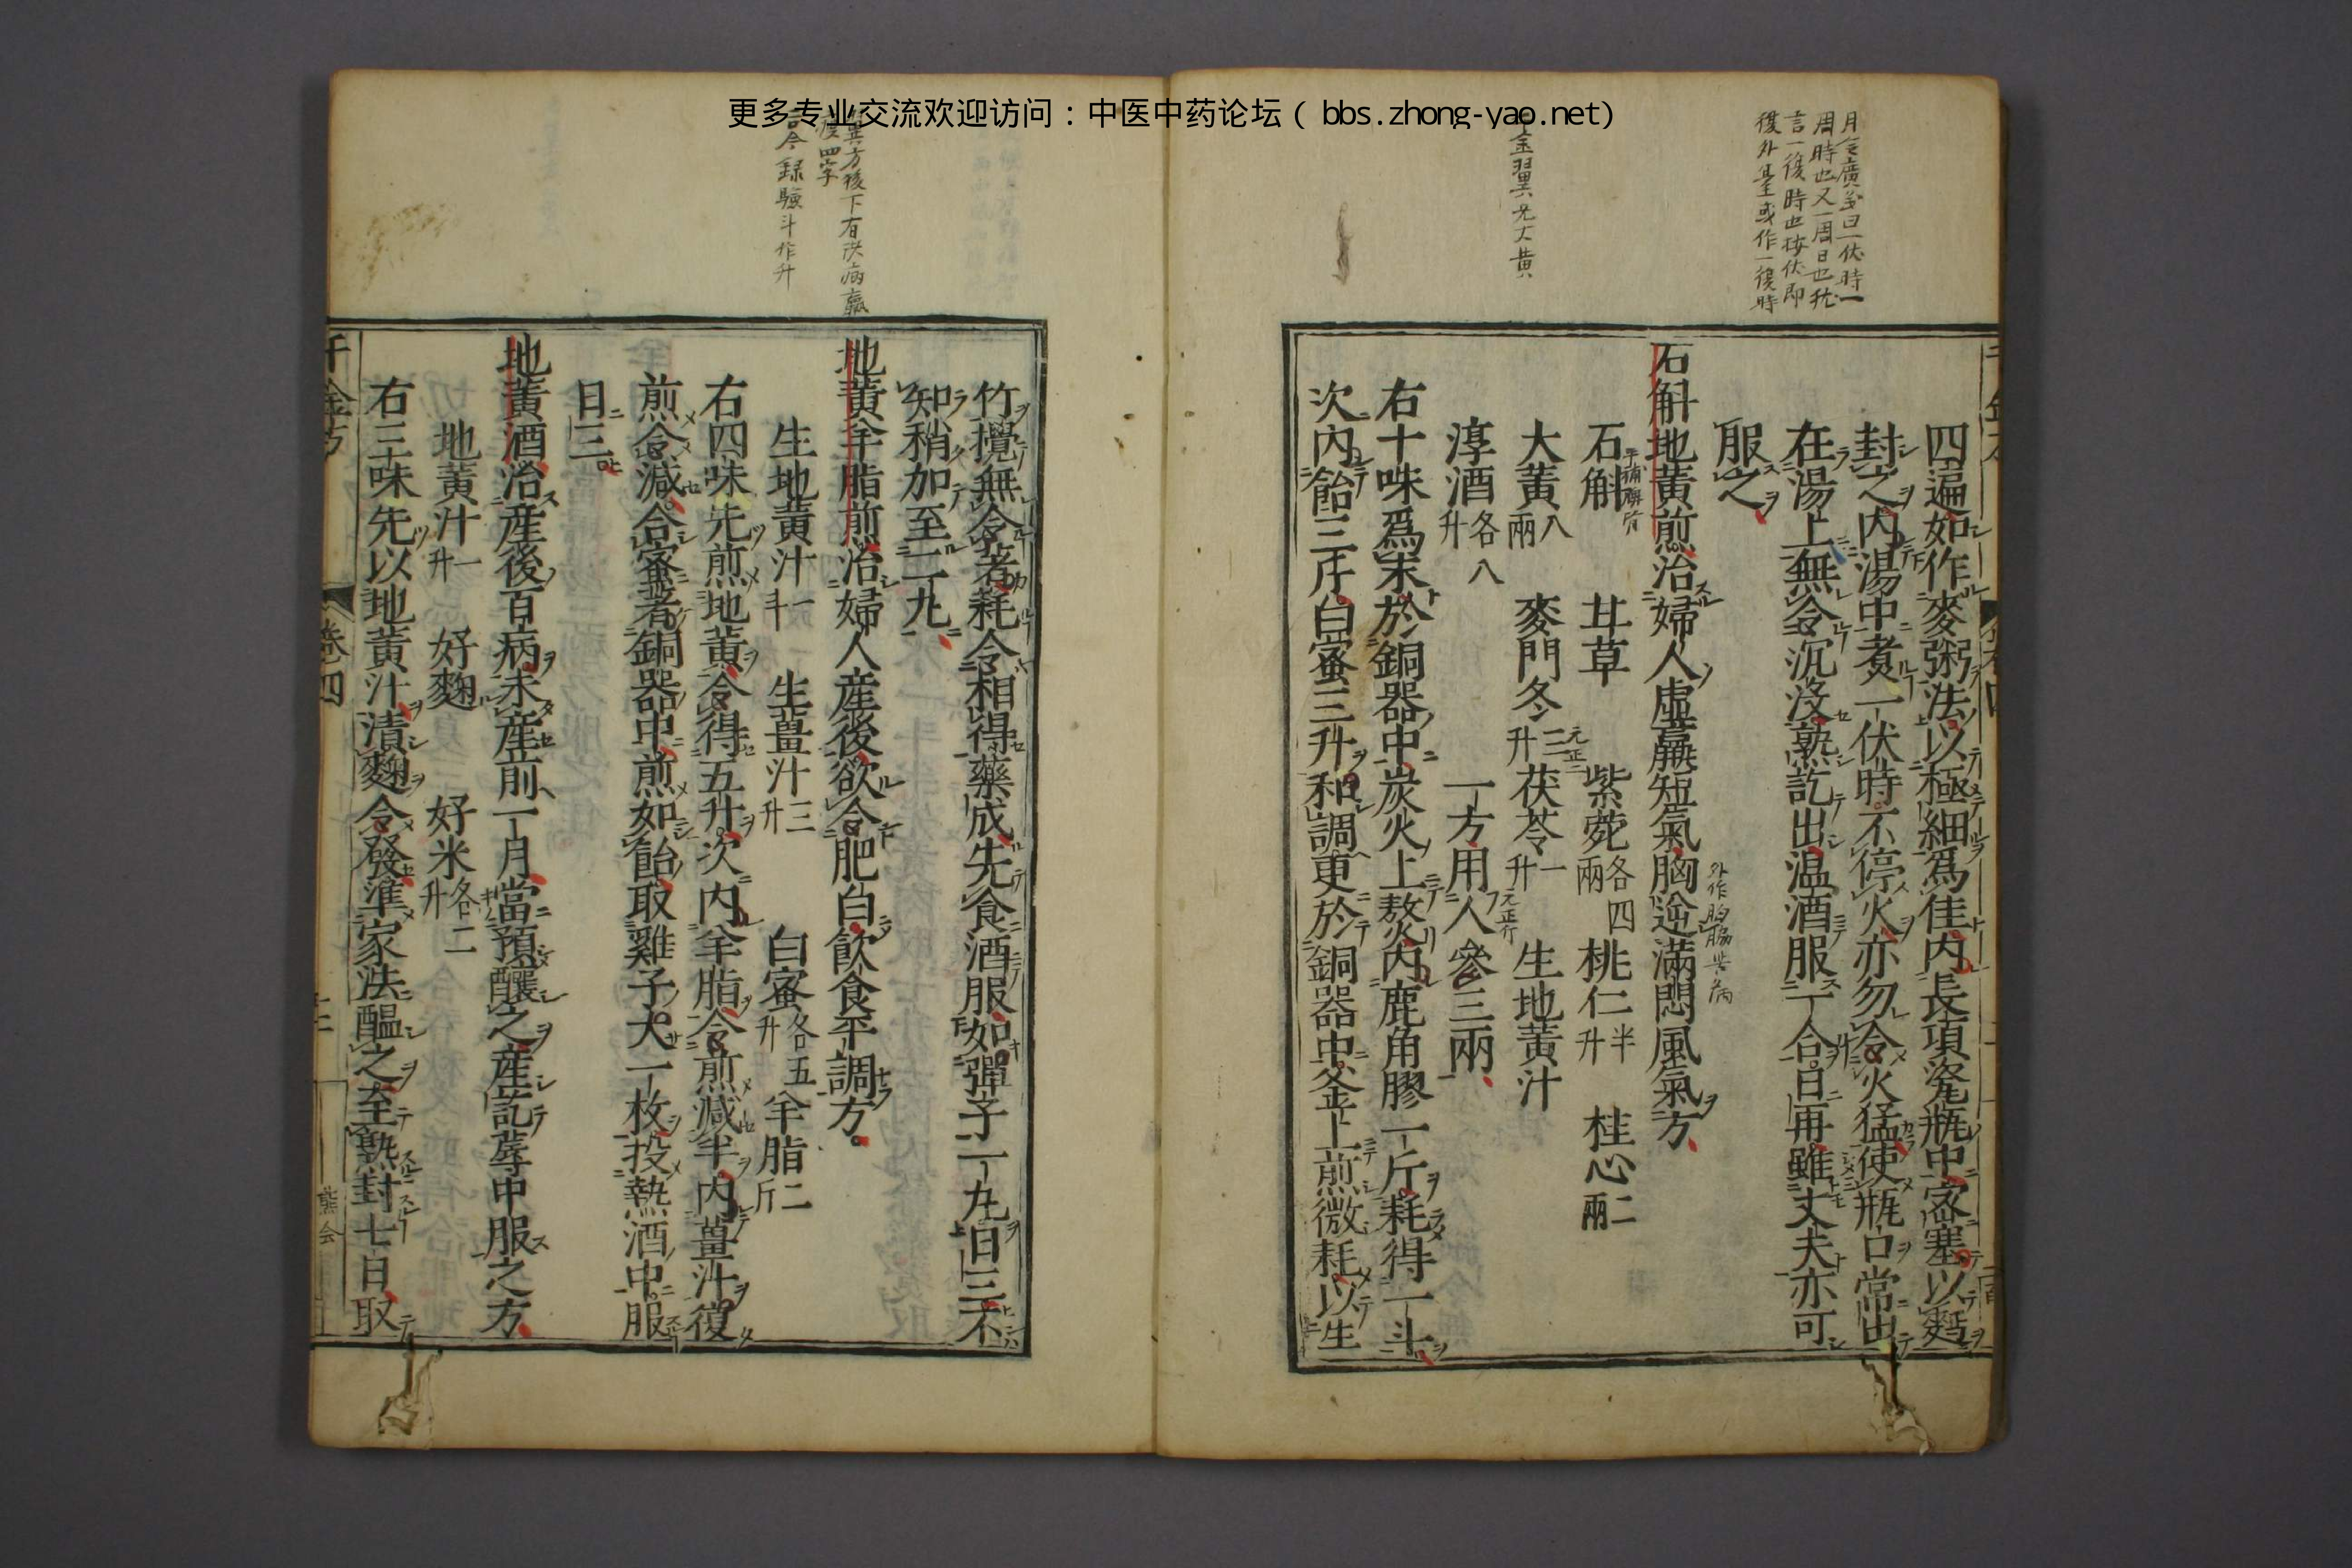 更多专业交流欢迎访问：中医中药论坛（bbs.zhong-yao.net）
月令廣義曰一伏時一
周時也又一周日也猶
言一復時也按伏即
復外臺或作一復時
四遍如作麥粥法以極細爲佳內長項瓷瓶中密塞以麪
封之內湯中煮一伏時不停火亦勿令火猛使瓶口常出
在湯上無令沉沒熟訖出温酒服一合日再雖丈夫亦可
服之
石斛地黃煎治婦人虛羸短氣胸逆滿悶風氣方
石斛 甘草 紫菀各四兩 桃仁半升 桂心二兩
大黃八兩 麥門冬二升 茯苓一升 生地黃汁
淳酒各八升 一方用人參三兩
右十味爲末於銅器中炭火上熬內鹿角膠一斤耗得一斗
次內飴三斤白蜜三升和調更於銅器中釜上煎微耗以生
金翼无大黃
竹攪無令著耗令相得藥成先食酒服如彈子一丸日三不
知稍加至二丸
地黃羊脂煎治婦人產後欲令肥白飲食平調方
生地黃汁一斗 生薑汁三升 白蜜各五升 羊脂二斤
右四味先煎地黃令得五升次內羊脂令煎減半內薑汁復
煎令減合蜜著銅器中煎如飴取雞子大一枚投熱酒中服
日三
地黃酒治產後百病未產前一月當預釀之產訖蓐中服之方
地黃汁一升 好麴 好米各二升
右三味先以地黃汁漬麴令發準家法醞之至熟封七日取
翼方後下有決病羸
瘦四字
古今録驗斗作升
千金方 卷四